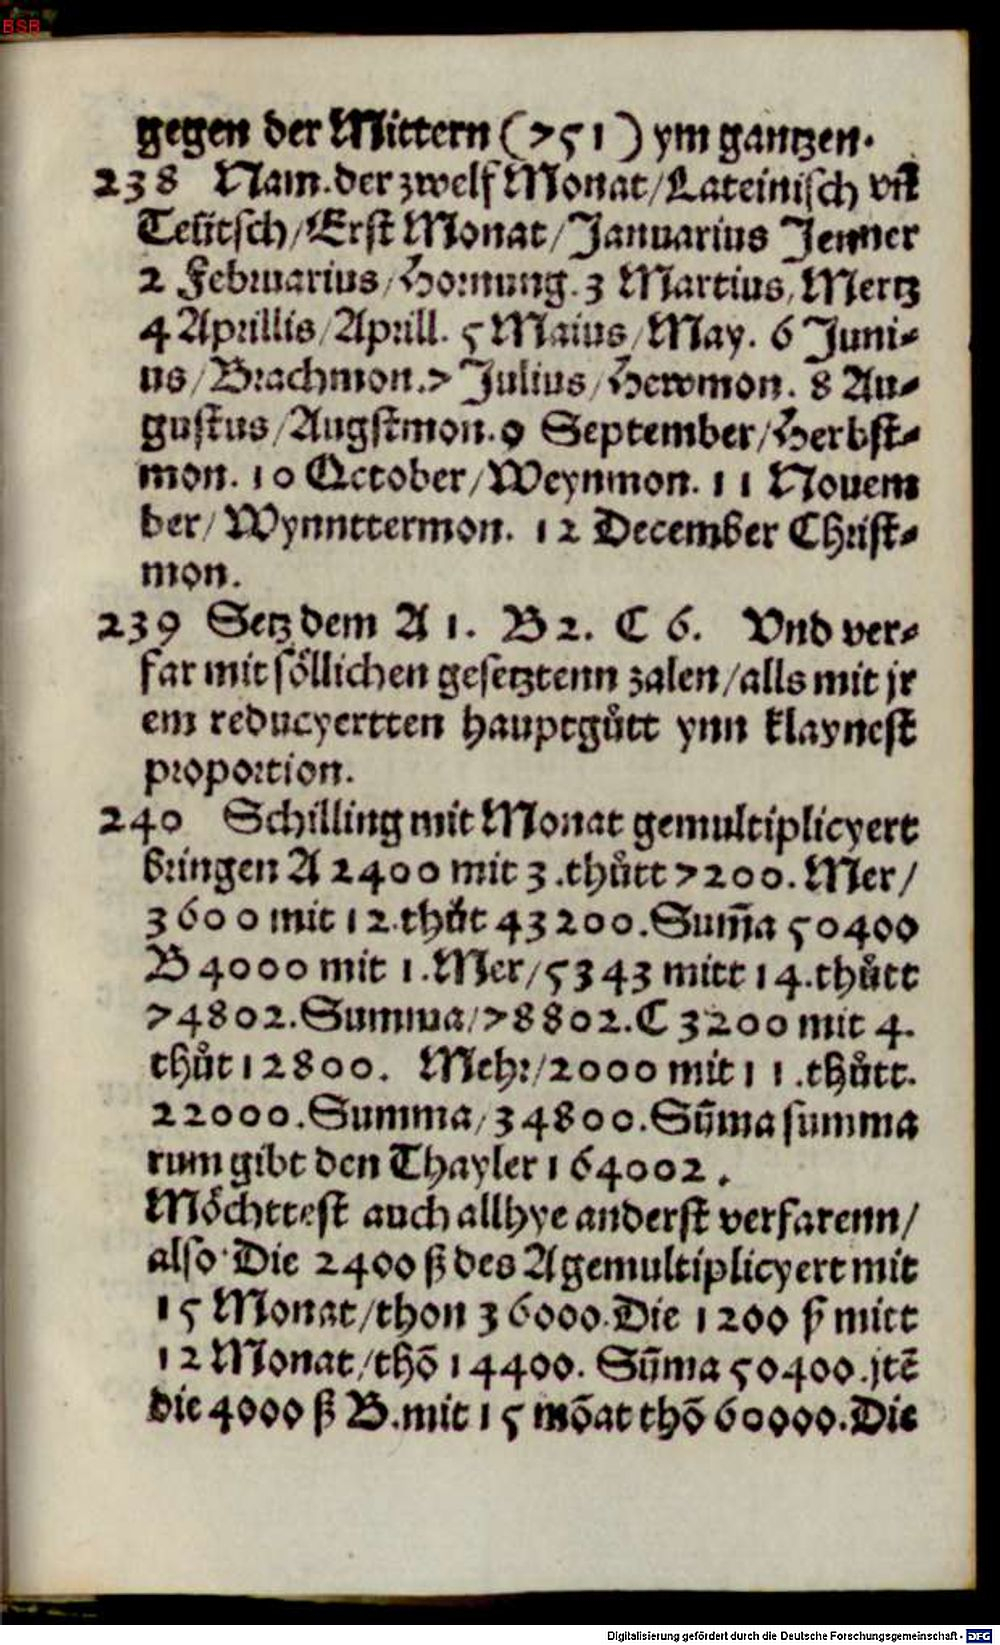 BSB
gegen der Mittern (751) ym gantzen.
238 Nam. der zwelf Monat/Lateinisch vñ
Teütsch/Erst Monat/Januarius Jenner
2 Februarius/Hornung. 3 Martius, Mertz
4 Aprillis/Aprill. 5 Maius/May. 6 Juni-
us/Brachmon. 7 Julius/Hewmon. 8 Au-
gustus/Augstmon. 9 September/Herbst-
mon. 10 October/Weynmon. 11 Nouem
ber/Wynnttermon. 12 December Christ-
mon.
239 Setz dem A 1. B 2. C 6. Vnd ver-
far mit söllichen gesetztenn zalen/alls mit jr
em reducyertten hauptgůtt ynn klaynest
proportion.
240 Schilling mit Monat gemultiplicyert
bringen A 2400 mit 3. thůtt 7200. Mer/
3600 mit 12. thůt 43200. Sum̃a 50400
B 4000 mit 1. Mer/5343 mitt 14. thůtt
74802. Summa/78802. C 3200 mit 4.
thůt 12800. Mehr/2000 mit 11. thůtt.
22000. Summa/34800. Sũma summa
rum gibt den Thayler 164002.
Möchttest auch allhye anderst verfarenn/
also Die 2400 ß des A gemultiplicyert mit
15 Monat/thon 36000. Die 1200 ß mitt
12 Monat/thõ 14400. Sũma 50400. jtẽ
die 4000 ß B. mit 15 mõat thõ 60000. Die
Digitalisierung gefördert durch die Deutsche Forschungsgemeinschaft - DFG